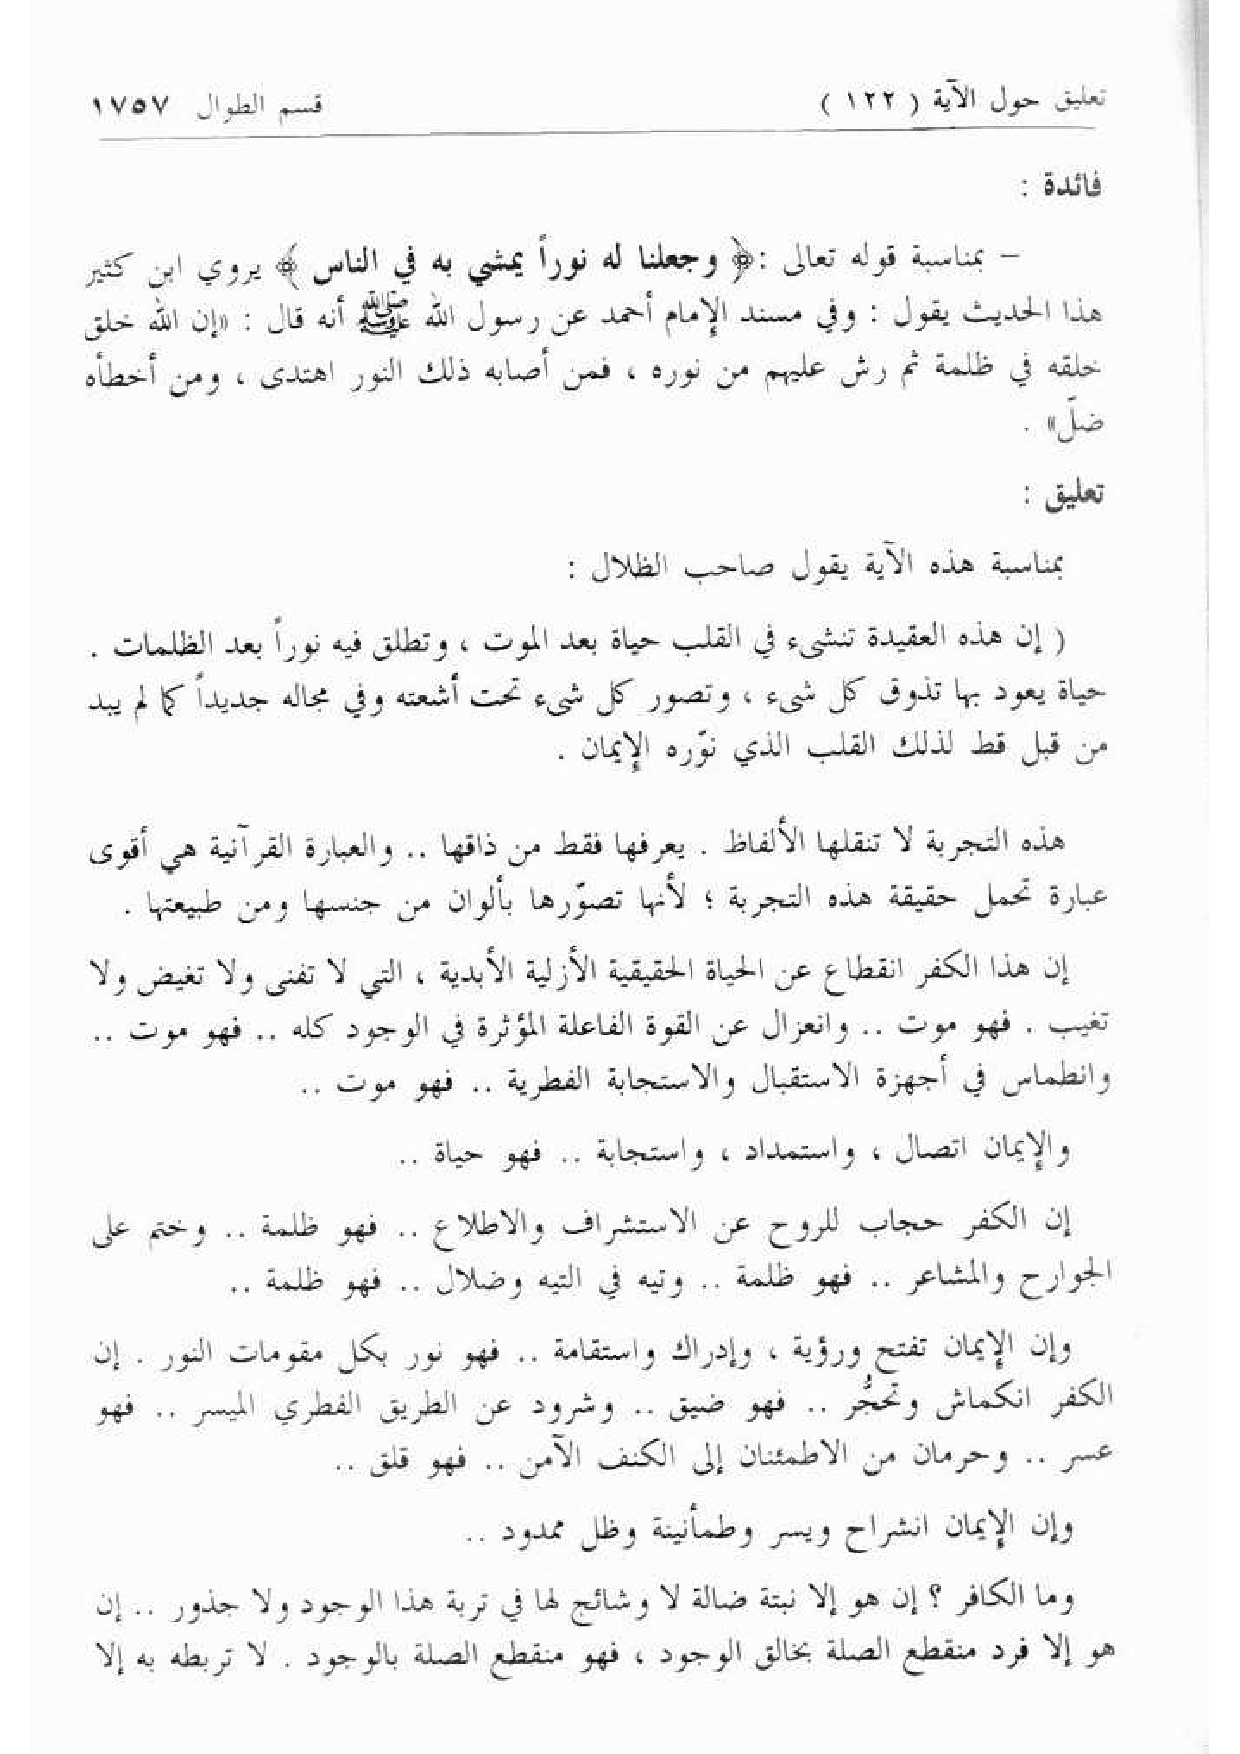 تعليق حول الآية ( ١٢٢ ) قسم الطوال ١٧٥٧
فائدة :
– بمناسبة قوله تعالى : ﴿ وجعلنا له نوراً يمشي به في الناس ﴾ يروي ابن كثير
هذا الحديث يقول : وفي مسند الإمام أحمد عن رسول الله ﷺ أنه قال : «إن الله خلق
خلقه في ظلمة ثم رش عليهم من نوره ، فمن أصابه ذلك النور اهتدى ، ومن أخطأه
ضلّ» .
تعليق :
بمناسبة هذه الآية يقول صاحب الظلال :
( إن هذه العقيدة تنشىء في القلب حياة بعد الموت ، وتطلق فيه نوراً بعد الظلمات .
حياة يعود بها تذوق كل شىء ، وتصور كل شىء تحت أشعته وفي مجاله جديداً كما لم يبد
من قبل قط لذلك القلب الذي نوّره الإيمان .
هذه التجربة لا تنقلها الألفاظ . يعرفها فقط من ذاقها .. والعبارة القرآنية هي أقوى
عبارة تحمل حقيقة هذه التجربة ؛ لأنها تصوّرها بألوان من جنسها ومن طبيعتها .
إن هذا الكفر انقطاع عن الحياة الحقيقية الأزلية الأبدية ، التي لا تفنى ولا تغيض ولا
تغيب . فهو موت .. وانعزال عن القوة الفاعلة المؤثرة في الوجود كله .. فهو موت ..
وانطماس في أجهزة الاستقبال والاستجابة الفطرية .. فهو موت ..
والإيمان اتصال ، واستمداد ، واستجابة .. فهو حياة ..
إن الكفر حجاب للروح عن الاستشراف والاطلاع .. فهو ظلمة .. وختم على
الجوارح والمشاعر .. فهو ظلمة .. وتيه في التيه وضلال .. فهو ظلمة ..
وإن الإيمان تفتح ورؤية ، وإدراك واستقامة .. فهو نور بكل مقومات النور . إن
الكفر انكماش وتحجُّر .. فهو ضيق .. وشرود عن الطريق الفطري الميسر .. فهو
عسر .. وحرمان من الاطمئنان إلى الكنف الآمن .. فهو قلق ..
وإن الإيمان انشراح ويسر وطمأنينة وظل ممدود ..
وما الكافر ؟ إن هو إلا نبتة ضالة لا وشائج لها في تربة هذا الوجود ولا جذور .. إن
هو إلا فرد منقطع الصلة بخالق الوجود ، فهو منقطع الصلة بالوجود . لا تربطه به إلا